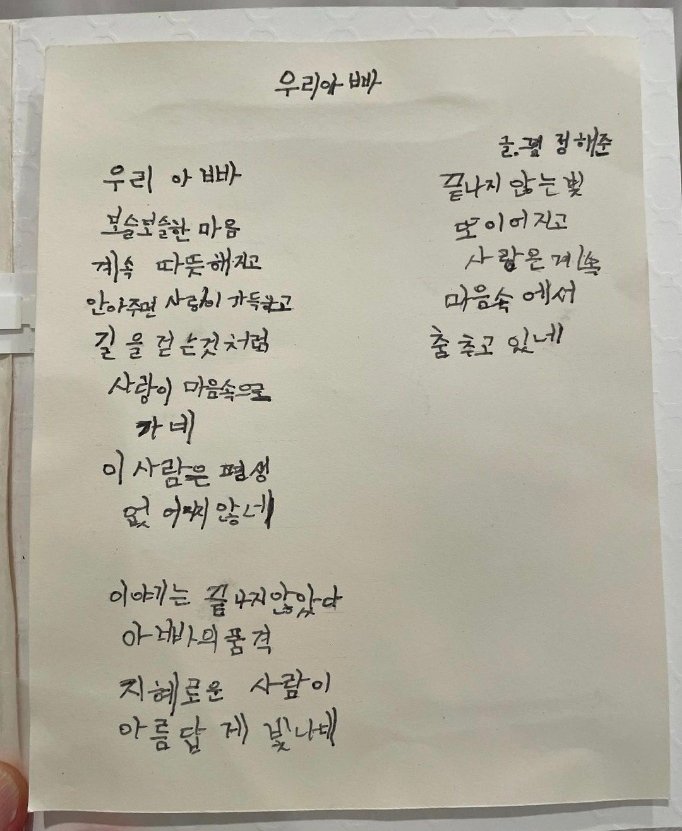 우리아빠
글.펼 정해준
우리 아빠
보슬보슬한 마음
계속 따뜻해지고
안아주면 사랑이 가득하고
길을 걷는것처럼
사랑이 마음속으로
가네
이 사람은 평생
없어지지 않네
이야기는 끝나지않았다
아빠의 품격
지혜로운 사람이
아름답게 빛나네
끝나지 않는 빛
또 이어지고
사랑은 계속
마음속에서
춤추고 있네